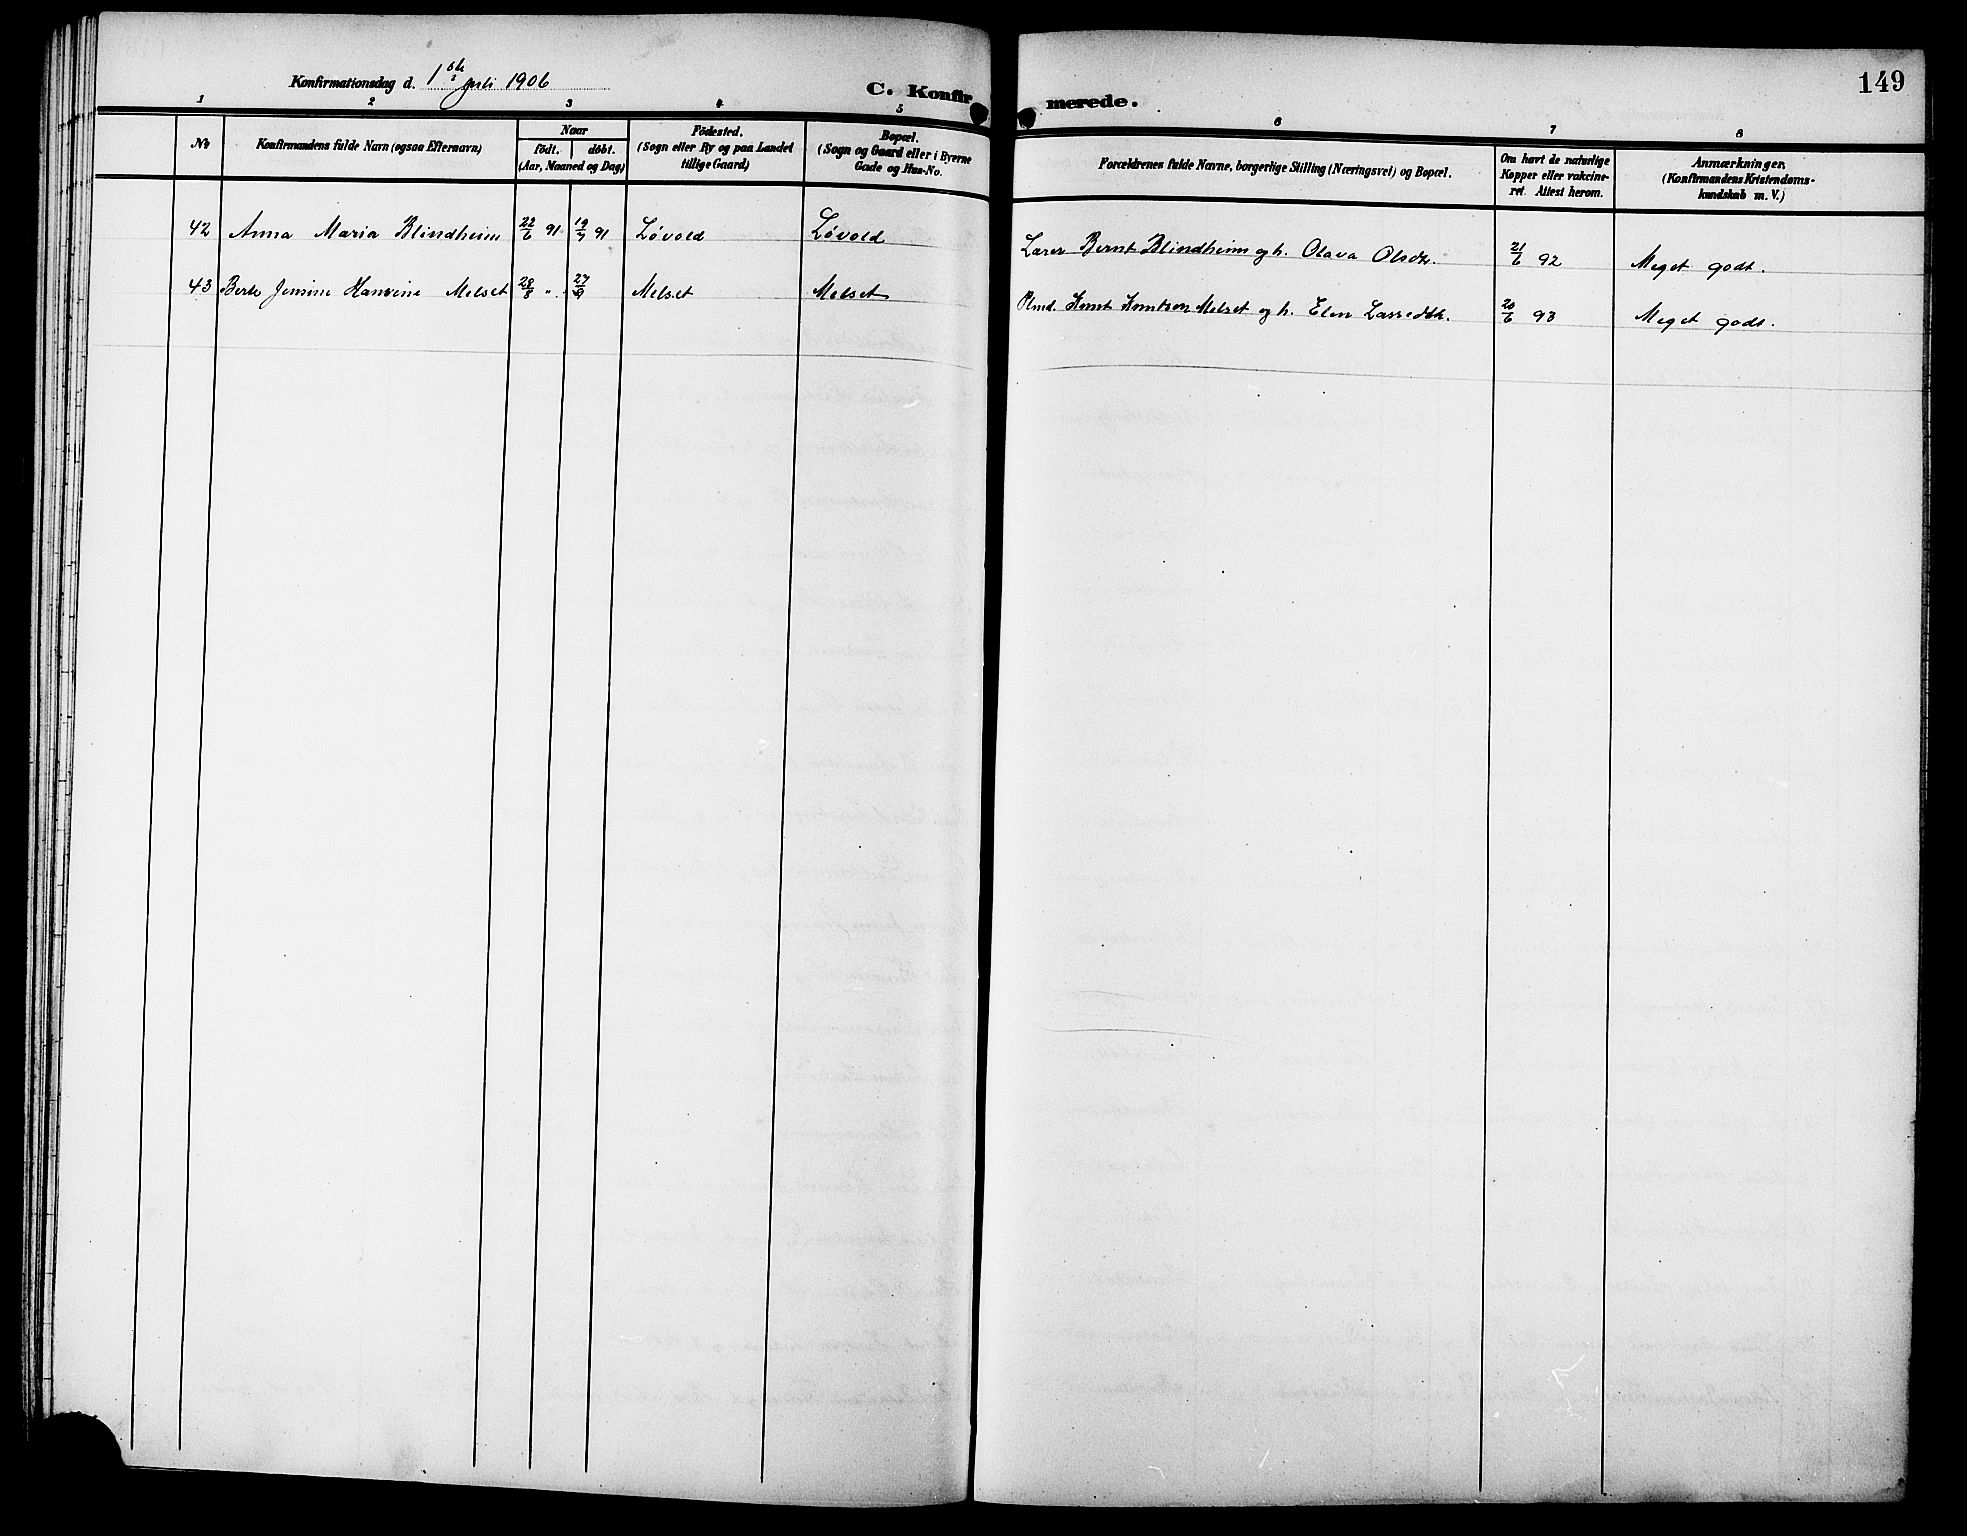 149
Konfirmationsdag d. 1ste Juli 1906
C. Konfir merede.
1 2 3 4 5 6 7 8
No
Konfirmandens fulde Navn (ogsaa Efternavn)
Naar
födt. döbt.
(Aar, Maaned og Dag)
Födested.
(Sogn eller By og paa Landet
tillige Gaard)
Bopæl.
(Sogn og Gaard eller i Byerne
Gade og Hus-No.
Forældrenes fulde Navne, borgerlige Stilling (Næringsvei) og Bopæl.
Om havt de naturlige
Kopper eller vakcine-
ret. Attest herom.
Anmærkninger.
(Konfirmandens Kristendoms-
kundskab m. V.)
42 Anna Maria Blindheim 22/6 91 19/7 91 Løvold Løvold Lærer Bernt Blindheim og h. Olava Olsdtr. 21/6 92 Meget godt.
43 Berte Jensine Hansine Melset 28/8 " 27/9 Melset Melset Knut Knutson Melset og h. Elen Larsedtr. 20/6 93 Meget godt.